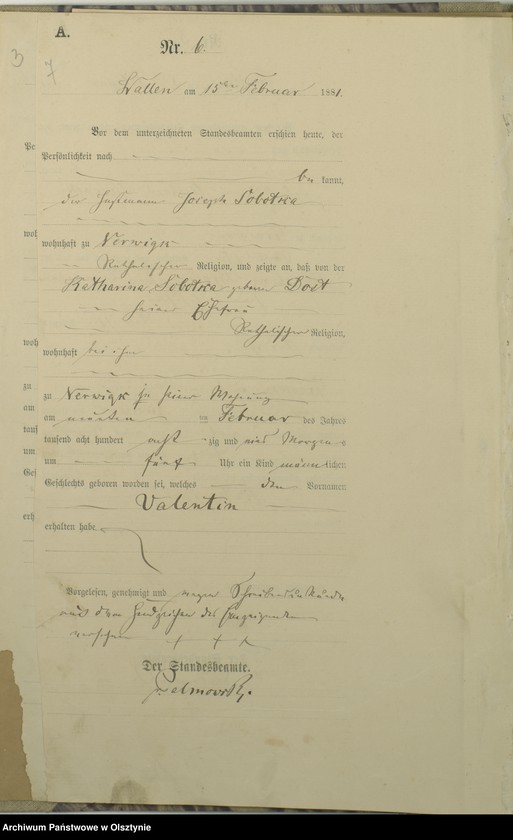 A.
3
7
Nr. 6.
Wallen am 15ten Februar 1881.
Vor dem unterzeichneten Standesbeamten erschien heute, der
Persönlichkeit nach
be kannt,
der Joseph Sobotka
wohnhaft zu Nerwigk
Katholischer Religion, und zeigte an, daß von der
Katharina Sobotka geborene
seiner Ehefrau
Katholischer Religion,
wohnhaft bei ihm
zu Nerwigk in seiner Wohnung
am neunten im Februar des Jahres
tausend acht hundert acht zig und eins Morgens
um fünf Uhr ein Kind männ lichen
Geschlechts geboren worden sei, welches den Vornamen
Valentin
erhalten habe.
Vorgelesen, genehmigt und wegen Schreibensunkunde
mit dem Handzeichen des Anzeigenden
versehen + + +
Der Standesbeamte.
Archiwum Państwowe w Olsztynie